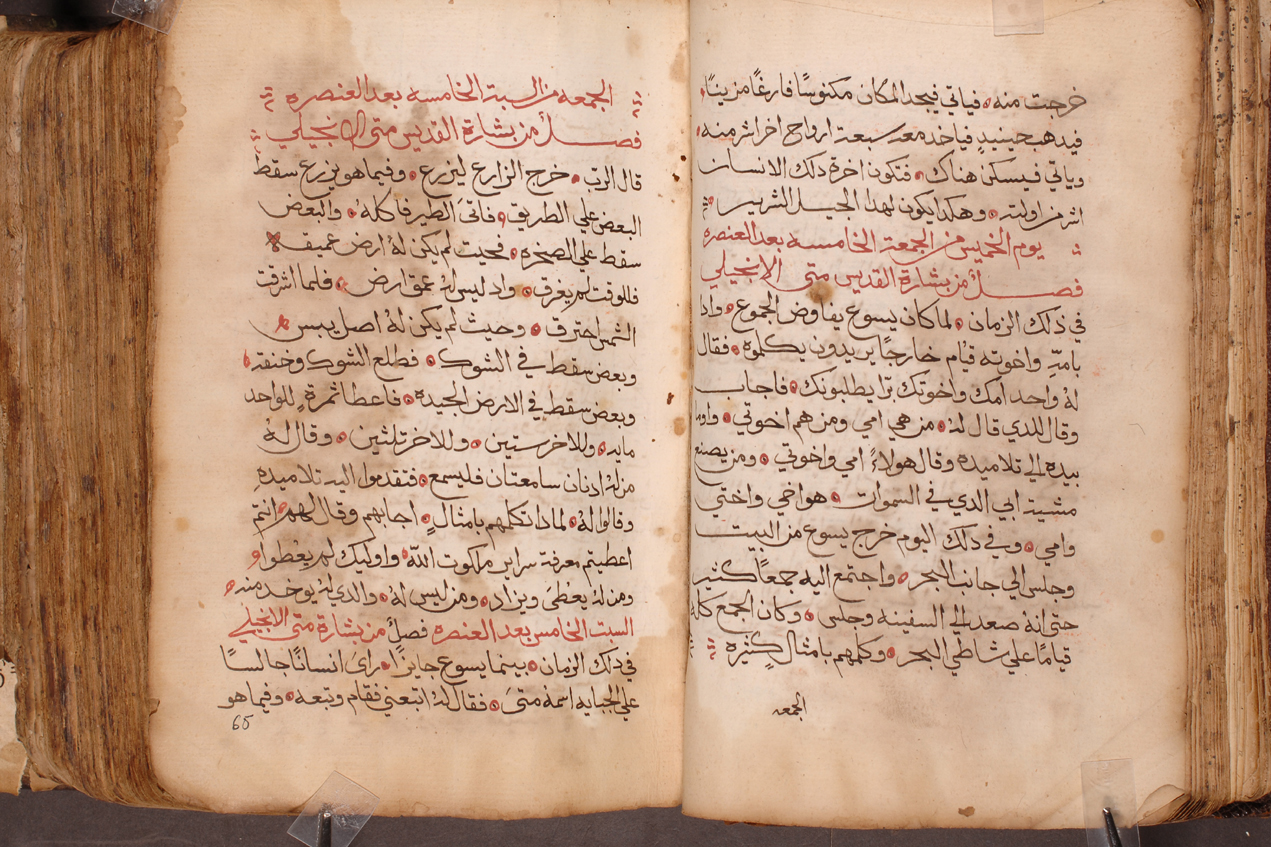 خرجت منه فياتي فيجد المكان مكنوسًا فارغًا مزينًا
فيدهب حينيدٍ فياخد معه سبعة ارواح اخر اشر منه
وياتي فيسكن هناك فتكون اخرة دلك الانسان
اشر من اولته وهكدا يكون لهدا الجيل الشرير
يوم الخميس من الجمعة الخامسه بعد العنصره
فصل من بشارة القديس متى الانجيلي
في دلك الزمان لما كان يسوع يفاوض الجموع وادا
بامهِ واخوته قيام خارجًا يريدون يكلموه فقال
لهُ واحد امك واخوتك برّا يطلبونك فاجاب
وقال للدي قال لهُ من هي امي ومن هم اخوتي واوما
بيده الي تلاميده وقال هولاءِ امي واخوتي ومن يصنع
مشيت ابي الدي في السموات هو اخي واختي
وامي وفي دلك اليوم خرج يسوع من البيت
وجلس الي جانب البحر واجتمع اليه جمعًا كثير
حتى انهُ صعد الي السفينه وجلس وكان الجمع كله
قيامًا علي شاطي البحر وكلمهم بامثال كثيره
الجمعه
الجمعه من السبة الخامسه بعد العنصره
فصل من بشارة القديس متى الانجيلي
قال الرب خرج الزارع ليزرع وفيما هو يزرع سقط
البعض علي الطريق فاتىَ الطير فاكلهُ والبعض
سقط علي الصخره فحيت لم يكن لهُ ارض عميقه
فللوقت لم يعرق واد ليس لهُ عمق ارض فلما اشرقت
الشمس احترق وحيث لم يكن لهُ اصل يبس
وبعض سقط في الشوك فطلع الشوك وخنقه
وبعض سقط في الارض الجيده فاعطا ثمرة للواحد
مايه وللاخر ستين وللاخر تلثين وقال لهُ
من لهُ ادنان سامعتان فليسمع فتقدموا اليه تلاميدهِ
وقالوا لهُ لمادا تكلمهم بامثالٍ اجابهم وقال لهم انتم
اعطيتم معرفة سراير ملكوت اللّه واوليك لم يعطوا
ومن لهُ يعطىَ ويزاد ومن ليس لهُ والدي لهُ يوخد منه
السبت الخامس بعد العنصره فصل من بشارة متى الانجيلي
في دلك الزمان بينما يسوع جايزًا راىَ انسانًا جالسًا
علي الجبايه اسمهُ متىَ فقال لهُ اتبعني فقام وتبعه وفيما هو
65